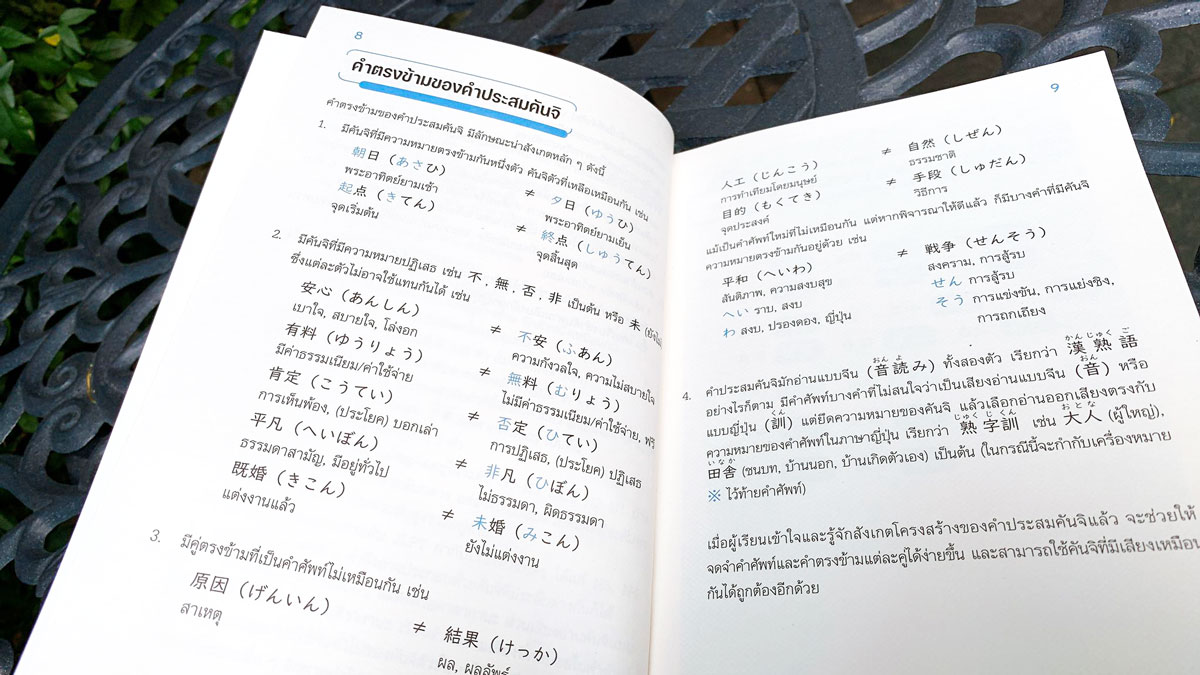 8
คำตรงข้ามของคำประสมคันจิ
คำตรงข้ามของคำประสมคันจิ มีลักษณะน่าสังเกตหลัก ๆ ดังนี้
1. มีคันจิที่มีความหมายตรงข้ามกันหนึ่งตัว คันจิตัวที่เหลือเหมือนกัน เช่น
朝日 (あさひ) ≠ 夕日 (ゆうひ)
พระอาทิตย์ยามเช้า พระอาทิตย์ยามเย็น
起点 (きてん) ≠ 終点 (しゅうてん)
จุดเริ่มต้น จุดสิ้นสุด
2. มีคันจิที่มีความหมายปฏิเสธ เช่น 不 , 無 , 否 , 非 เป็นต้น หรือ 未
ซึ่งแต่ละตัวไม่อาจใช้แทนกันได้ เช่น
安心 (あんしん) ≠ 不安 (ふあん)
เบาใจ, สบายใจ, โล่งอก ความกังวลใจ, ความไม่สบายใจ
有料 (ゆうりょう) ≠ 無料 (むりょう)
มีค่าธรรมเนียม/ค่าใช้จ่าย ไม่มีค่าธรรมเนียม/ค่าใช้จ่าย, ฟรี
肯定 (こうてい) ≠ 否定 (ひてい)
การเห็นพ้อง, (ประโยค) บอกเล่า การปฏิเสธ, (ประโยค) ปฏิเสธ
平凡 (へいぼん) ≠ 非凡 (ひぼん)
ธรรมดาสามัญ, มีอยู่ทั่วไป ไม่ธรรมดา, ผิดธรรมดา
既婚 (きこん) ≠ 未婚 (みこん)
แต่งงานแล้ว ยังไม่แต่งงาน
3. มีคู่ตรงข้ามที่เป็นคำศัพท์ไม่เหมือนกัน เช่น
原因 (げんいん) ≠ 結果 (けっか)
สาเหตุ ผล, ผลลัพธ์
9
人工 (じんこう) ≠ 自然 (しぜん)
การทำเทียมโดยมนุษย์ ธรรมชาติ
目的 (もくてき) ≠ 手段 (しゅだん)
จุดประสงค์ วิธีการ
แม้เป็นคำศัพท์ใหม่ที่ไม่เหมือนกัน แต่หากพิจารณาให้ดีแล้ว ก็มีบางคำที่มีคันจิ
ความหมายตรงข้ามกันอยู่ด้วย เช่น
平和 (へいわ) ≠ 戦争 (せんそう)
สันติภาพ, ความสงบสุข สงคราม, การสู้รบ
へい ราบ, สงบ せん การสู้รบ
わ สงบ, ปรองดอง, ญี่ปุ่น そう การแข่งขัน, การแย่งชิง,
การถกเถียง
4. คำประสมคันจิมักอ่านแบบจีน (音読み) ทั้งสองตัว เรียกว่า 漢熟語
おん よ かん じゅく ご
อย่างไรก็ตาม มีคำศัพท์บางคำที่ไม่สนใจว่าเป็นเสียงอ่านแบบจีน (音) หรือ
おん
แบบญี่ปุ่น (訓) แต่ยึดความหมายของคันจิ แล้วเลือกอ่านออกเสียงตรงกับ
くん
ความหมายของคำศัพท์ในภาษาญี่ปุ่น เรียกว่า 熟字訓 เช่น 大人 (ผู้ใหญ่),
じゅく じ くん おとな
田舎 (ชนบท, บ้านนอก, บ้านเกิดตัวเอง) เป็นต้น (ในกรณีนี้จะกำกับเครื่องหมาย
いなか
※ ไว้ท้ายคำศัพท์)
เมื่อผู้เรียนเข้าใจและรู้จักสังเกตโครงสร้างของคำประสมคันจิแล้ว จะช่วยให้
จดจำคำศัพท์และคำตรงข้ามแต่ละคู่ได้ง่ายขึ้น และสามารถใช้คันจิที่มีเสียงเหมือน
กันได้ถูกต้องอีกด้วย